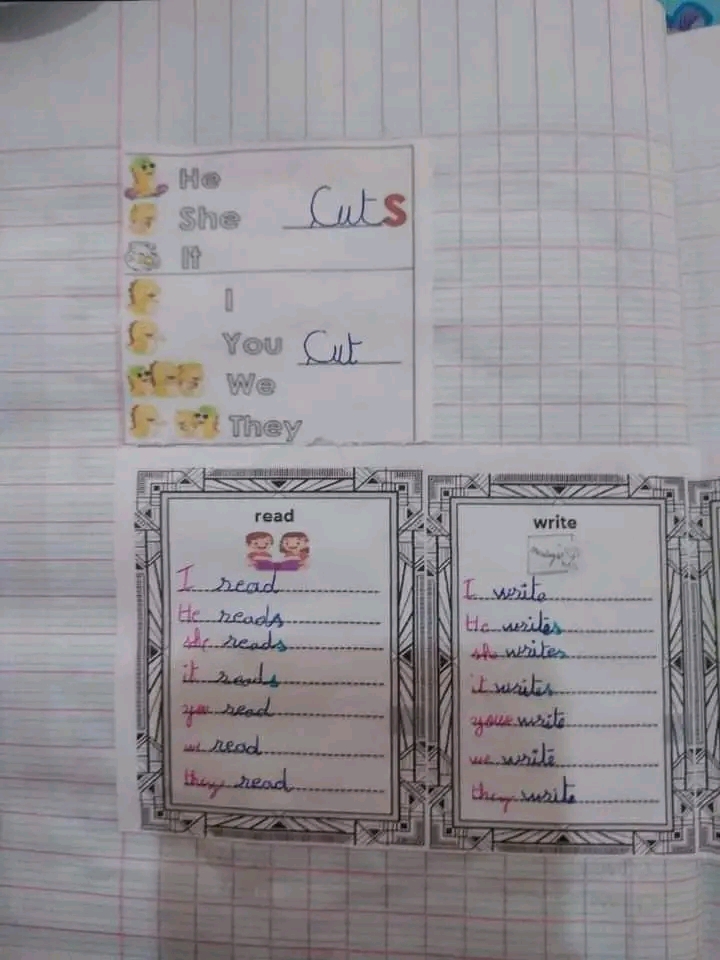 He
She CutS
It
I
You Cut
We
They
read
I read
He reads
she reads
it reads
you read
we read
they read
write
I write
He writes
she writes
it writes
youe write
we write
they write